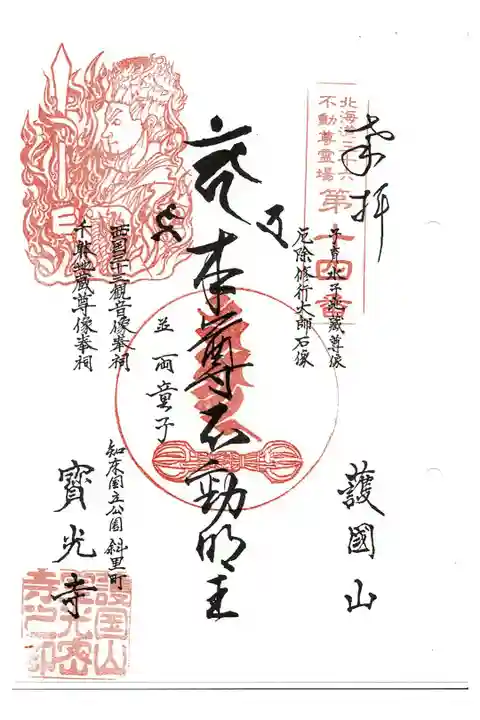 奉拝
北海道三十六
不動尊霊場
第十四番
子育水子地蔵尊像
厄除修行大師石像
護國山
本尊不動明王
並両童子
西国三十三観音像奉祠
千躰地蔵尊像奉祠
知床国立公園 斜里町
寳光寺
護国山
寳光密
寺之印